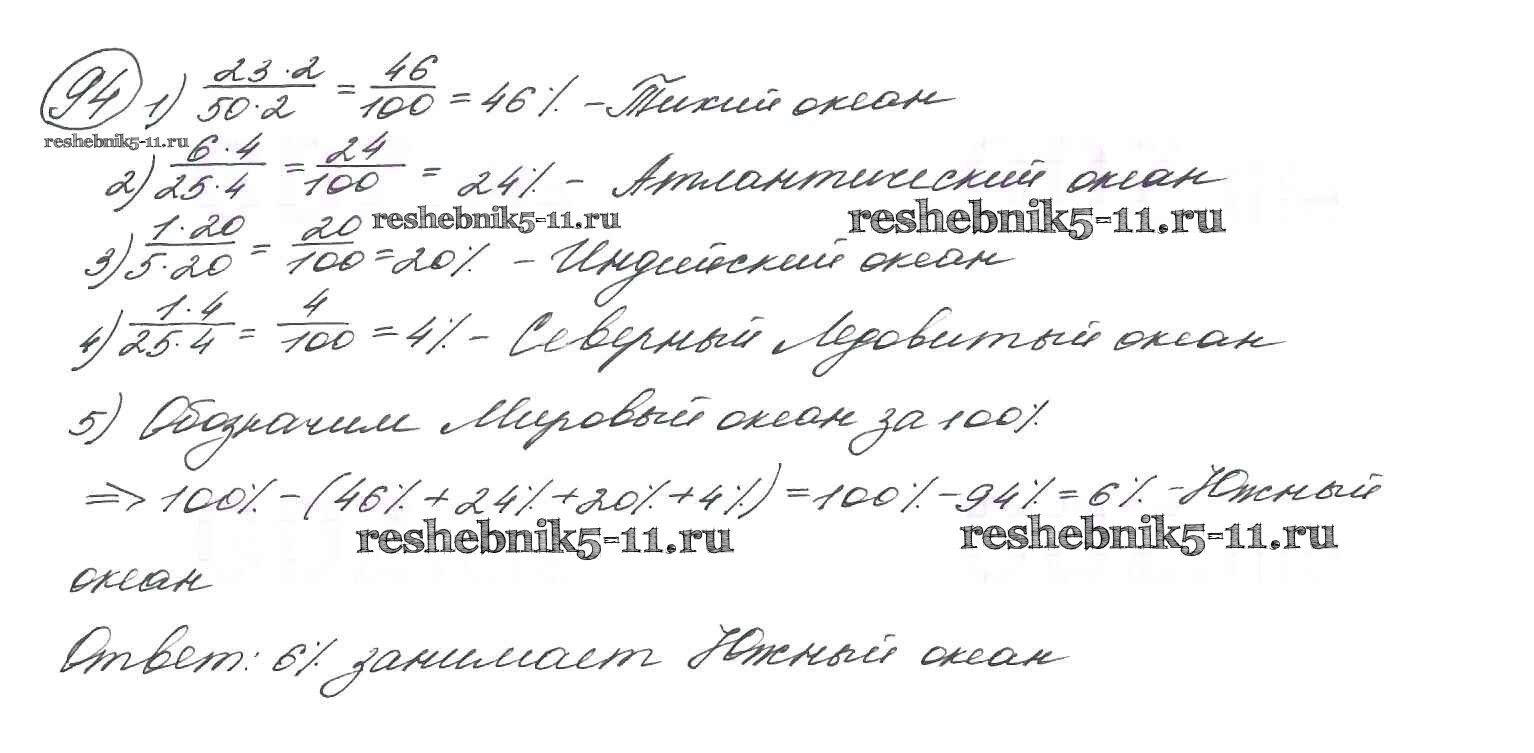 94 1) 23·2/50·2 = 46/100 = 46% - Тихий океан
reshebnik5-11.ru
2) 6·4/25·4 = 24/100 = 24% - Атлантический океан
reshebnik5-11.ru reshebnik5-11.ru
3) 1·20/5·20 = 20/100 = 20% - Индийский океан
4) 1·4/25·4 = 4/100 = 4% - Северный Ледовитый океан
5) Обозначим Мировый океан за 100%
=> 100% - (46% + 24% + 20% + 4%) = 100% - 94% = 6% - Южный
reshebnik5-11.ru reshebnik5-11.ru
океан
Ответ: 6% занимает Южный океан